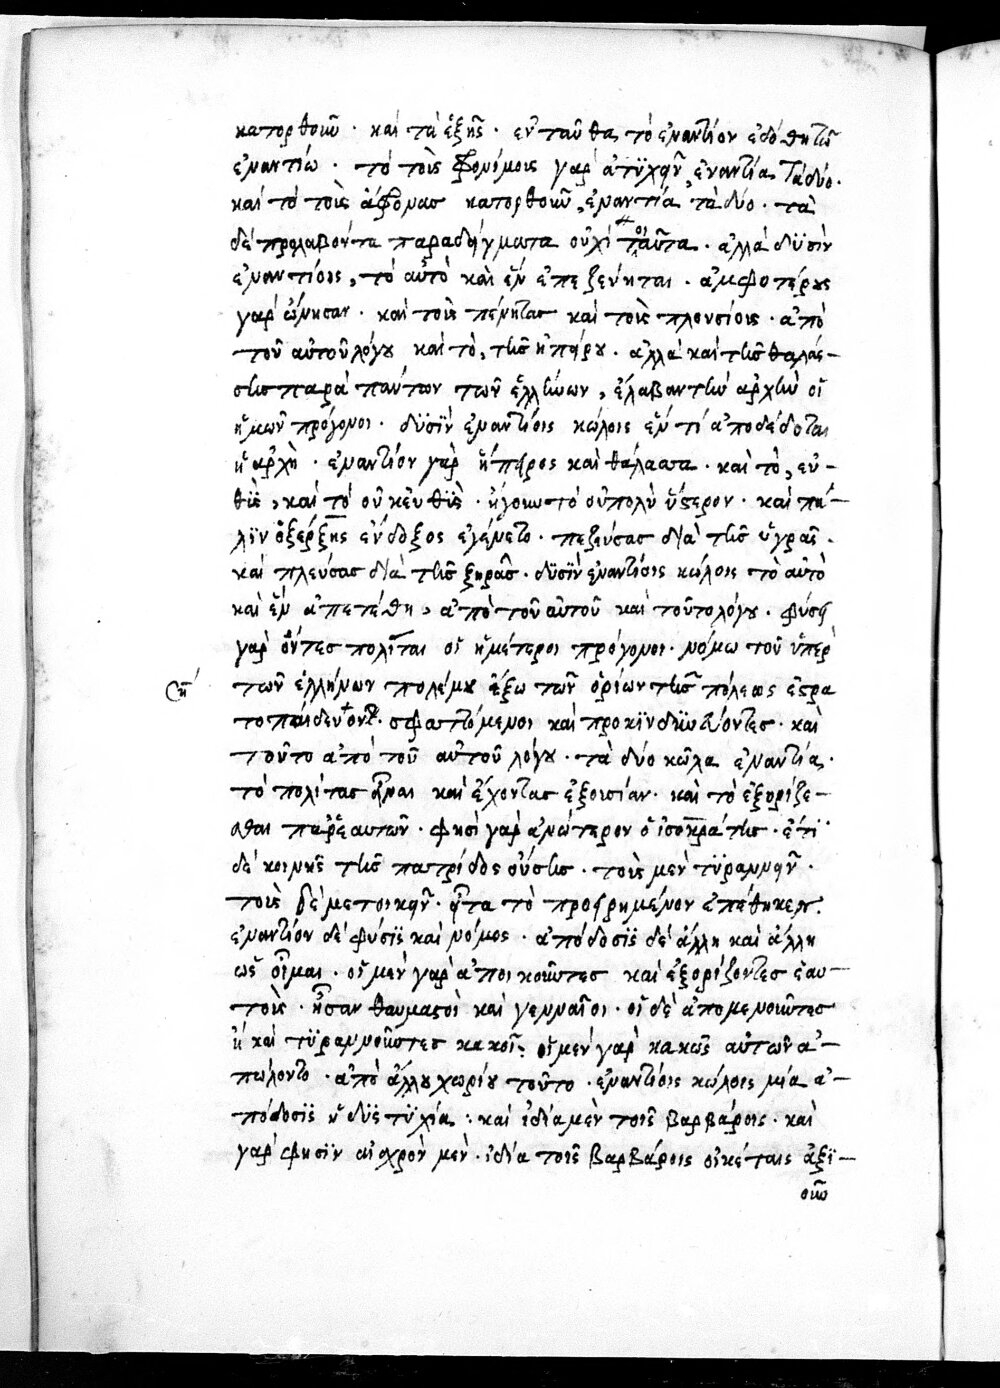 κατορθοῦν · καὶ τὰ ἑξῆς · ἐνταῦθα τὸ ἐναντίον ἐδόθη τῶ
ἐναντίω · τὸ τοῖς φρονίμοις γὰρ ἀτϋχεῖν, ἐναντία τὰ δύο ·
καὶ τὸ τοῖς ἄφρονας κατορθοῦν, ἐναντία τὰ δύο · τὰ
δὲ προλαβόντα παραδείγματα οὐχὶ τοιαῦτα · ἀλλὰ δϋσὶν
ἐναντίοις, τὸ αὐτὸ καὶ ἓν ἐπεζεύκται · ἀμφοτέρους
γὰρ ὤνησαν · καὶ τοὺς πένητας καὶ τοῖς πλουσίοις · ἀπὸ
τοῦ αὐτοῦ λόγου καὶ τὸ, τῆς ἠπείρου · ἀλλὰ καὶ τῆς θαλάσ–
σης παρὰ πάντων τῶν ἑλλήνων, ἔλαβαν τὴν ἀρχὴν οἱ
ἡμῶν πρόγονοι · δϋσὶν ἐναντίοις κώλοις ἕν τι ἀποδέδοται
ἡ ἀρχὴ · ἐναντίον γὰρ ἤπειρος καὶ θάλασσα · καὶ τὸ, εὐ–
θὺς, καὶ τὸ οὐκ εὐθὺς · ἤγουν τὸ οὐ πολὺ ὕστερον · καὶ πά–
λϊν ὁ ξέρξης ἔνδοξος ἐγένετο · πεζεύσας διὰ τῆς ὑγρᾶς ·
καὶ πλεύσας διὰ τῆς ξηρᾶς · δϋσὶν ἐναντίοις κώλοις τὸ αὐτὸ
καὶ ἓν ἀπετέθη, ἀπὸ τοῦ αὐτοῦ καὶ τοῦτο λόγου · φύσει
γὰρ ὄντες πολῖται οἱ ἡμέτεροι πρόγονοι · νόμω τοῦ ὑπὲρ
τῶν ἑλλήνων πολέμου ἔξω τῶν ὁρίων τῆς πόλεως ἐστρα
τοπαίδευοντο · σφαττόμενοι καὶ προκϊνδϋνεύοντες · καὶ
τοῦτο ἀπὸ τοῦ αὐτοῦ λόγου · τὰ δύο κῶλα ἐναντία ·
τὸ πολίτας εἶναι καὶ ἔχοντας ἐξουσίαν · καὶ τὸ ἐξορίζε–
σθαι παρ' ἑαυτῶν · φησὶ γὰρ ἀνώτερον ὁ ἰσοκράτης · ἔτϊ
δὲ κοινῆς τῆς πατρίδος οὔσης · τοὺς μὲν τϋραννεῖν ·
τοὺς δὲ μετοικεῖν · εἶτα τὸ προειρημένον ἐπέθηκεν ·
ἐναντίον δὲ φύσϊς καὶ νόμος · ἀπόδοσϊς δὲ ἄλλη καὶ ἄλλη
ὡς οἶμαι · οἱ μὲν γὰρ ἀποικοῦντες καὶ ἐξορίζοντες ἑαυ–
τοὺς · ἦσαν θαυμαστοὶ καὶ γενναῖοι · οἱ δὲ ἀπομένοντες
ἢ καὶ τϋραννοῦντες κακοί · οἱ μὲν γὰρ κακῶς αὐτῶν ἀ–
πώλοντο · ἀπὸ ἄλλου χωρίου τοῦτο · ἐναντίοις κώλοις μία ἀ–
πόδοσϊς ἡ δϋστϋχία : καὶ ἰδία μὲν τοῖς βαρβάροις · καὶ
γὰρ φησὶν αἰσχρὸν μὲν · ἰδία τοῖς βαρβάροις οἰκέταις ἀξϊ–
οῦν